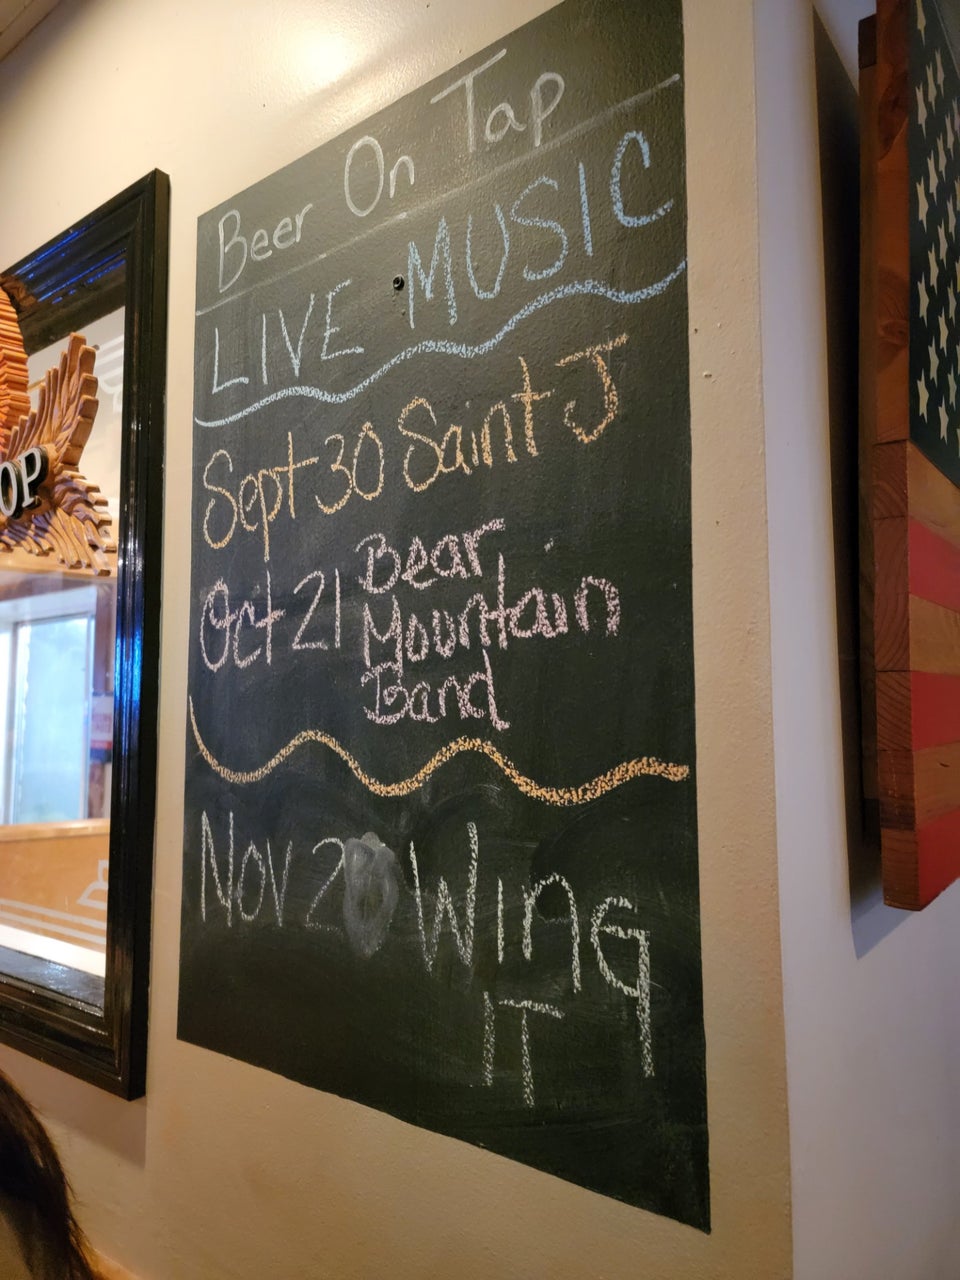 Beer On Tap
LIVE MUSIC
Sept 30 Saint J
Oct 21 Bear
Mountain
Band
Nov 20 Wing
IT
OP